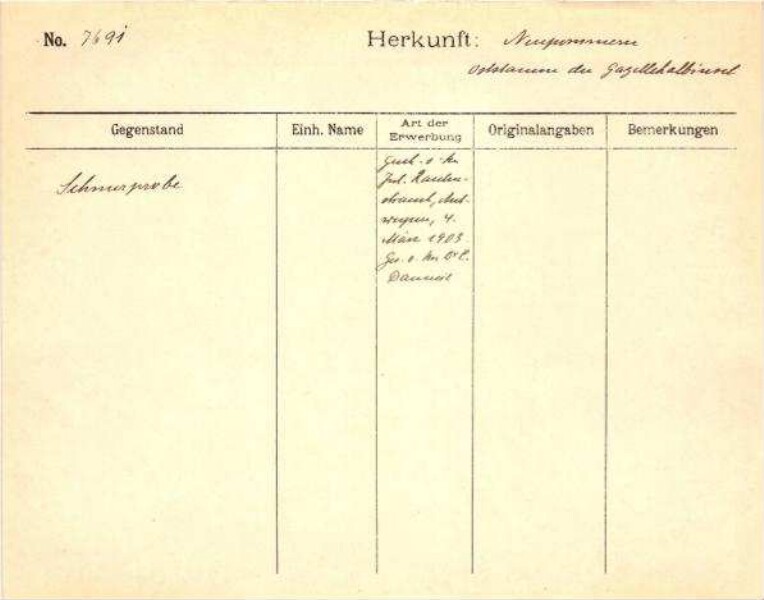 No. 7691
Herkunft: Neupommern
der Gazellehalbinsel
Gegenstand
Einh. Name
Art der
Erwerbung
Originalangaben
Bemerkungen
Schnurprobe
Gesch. v. Hn
Rauten-
strauch, Ant-
werpen, 4.
März 1903
Ges. v. Hn Dr C.
Danneil